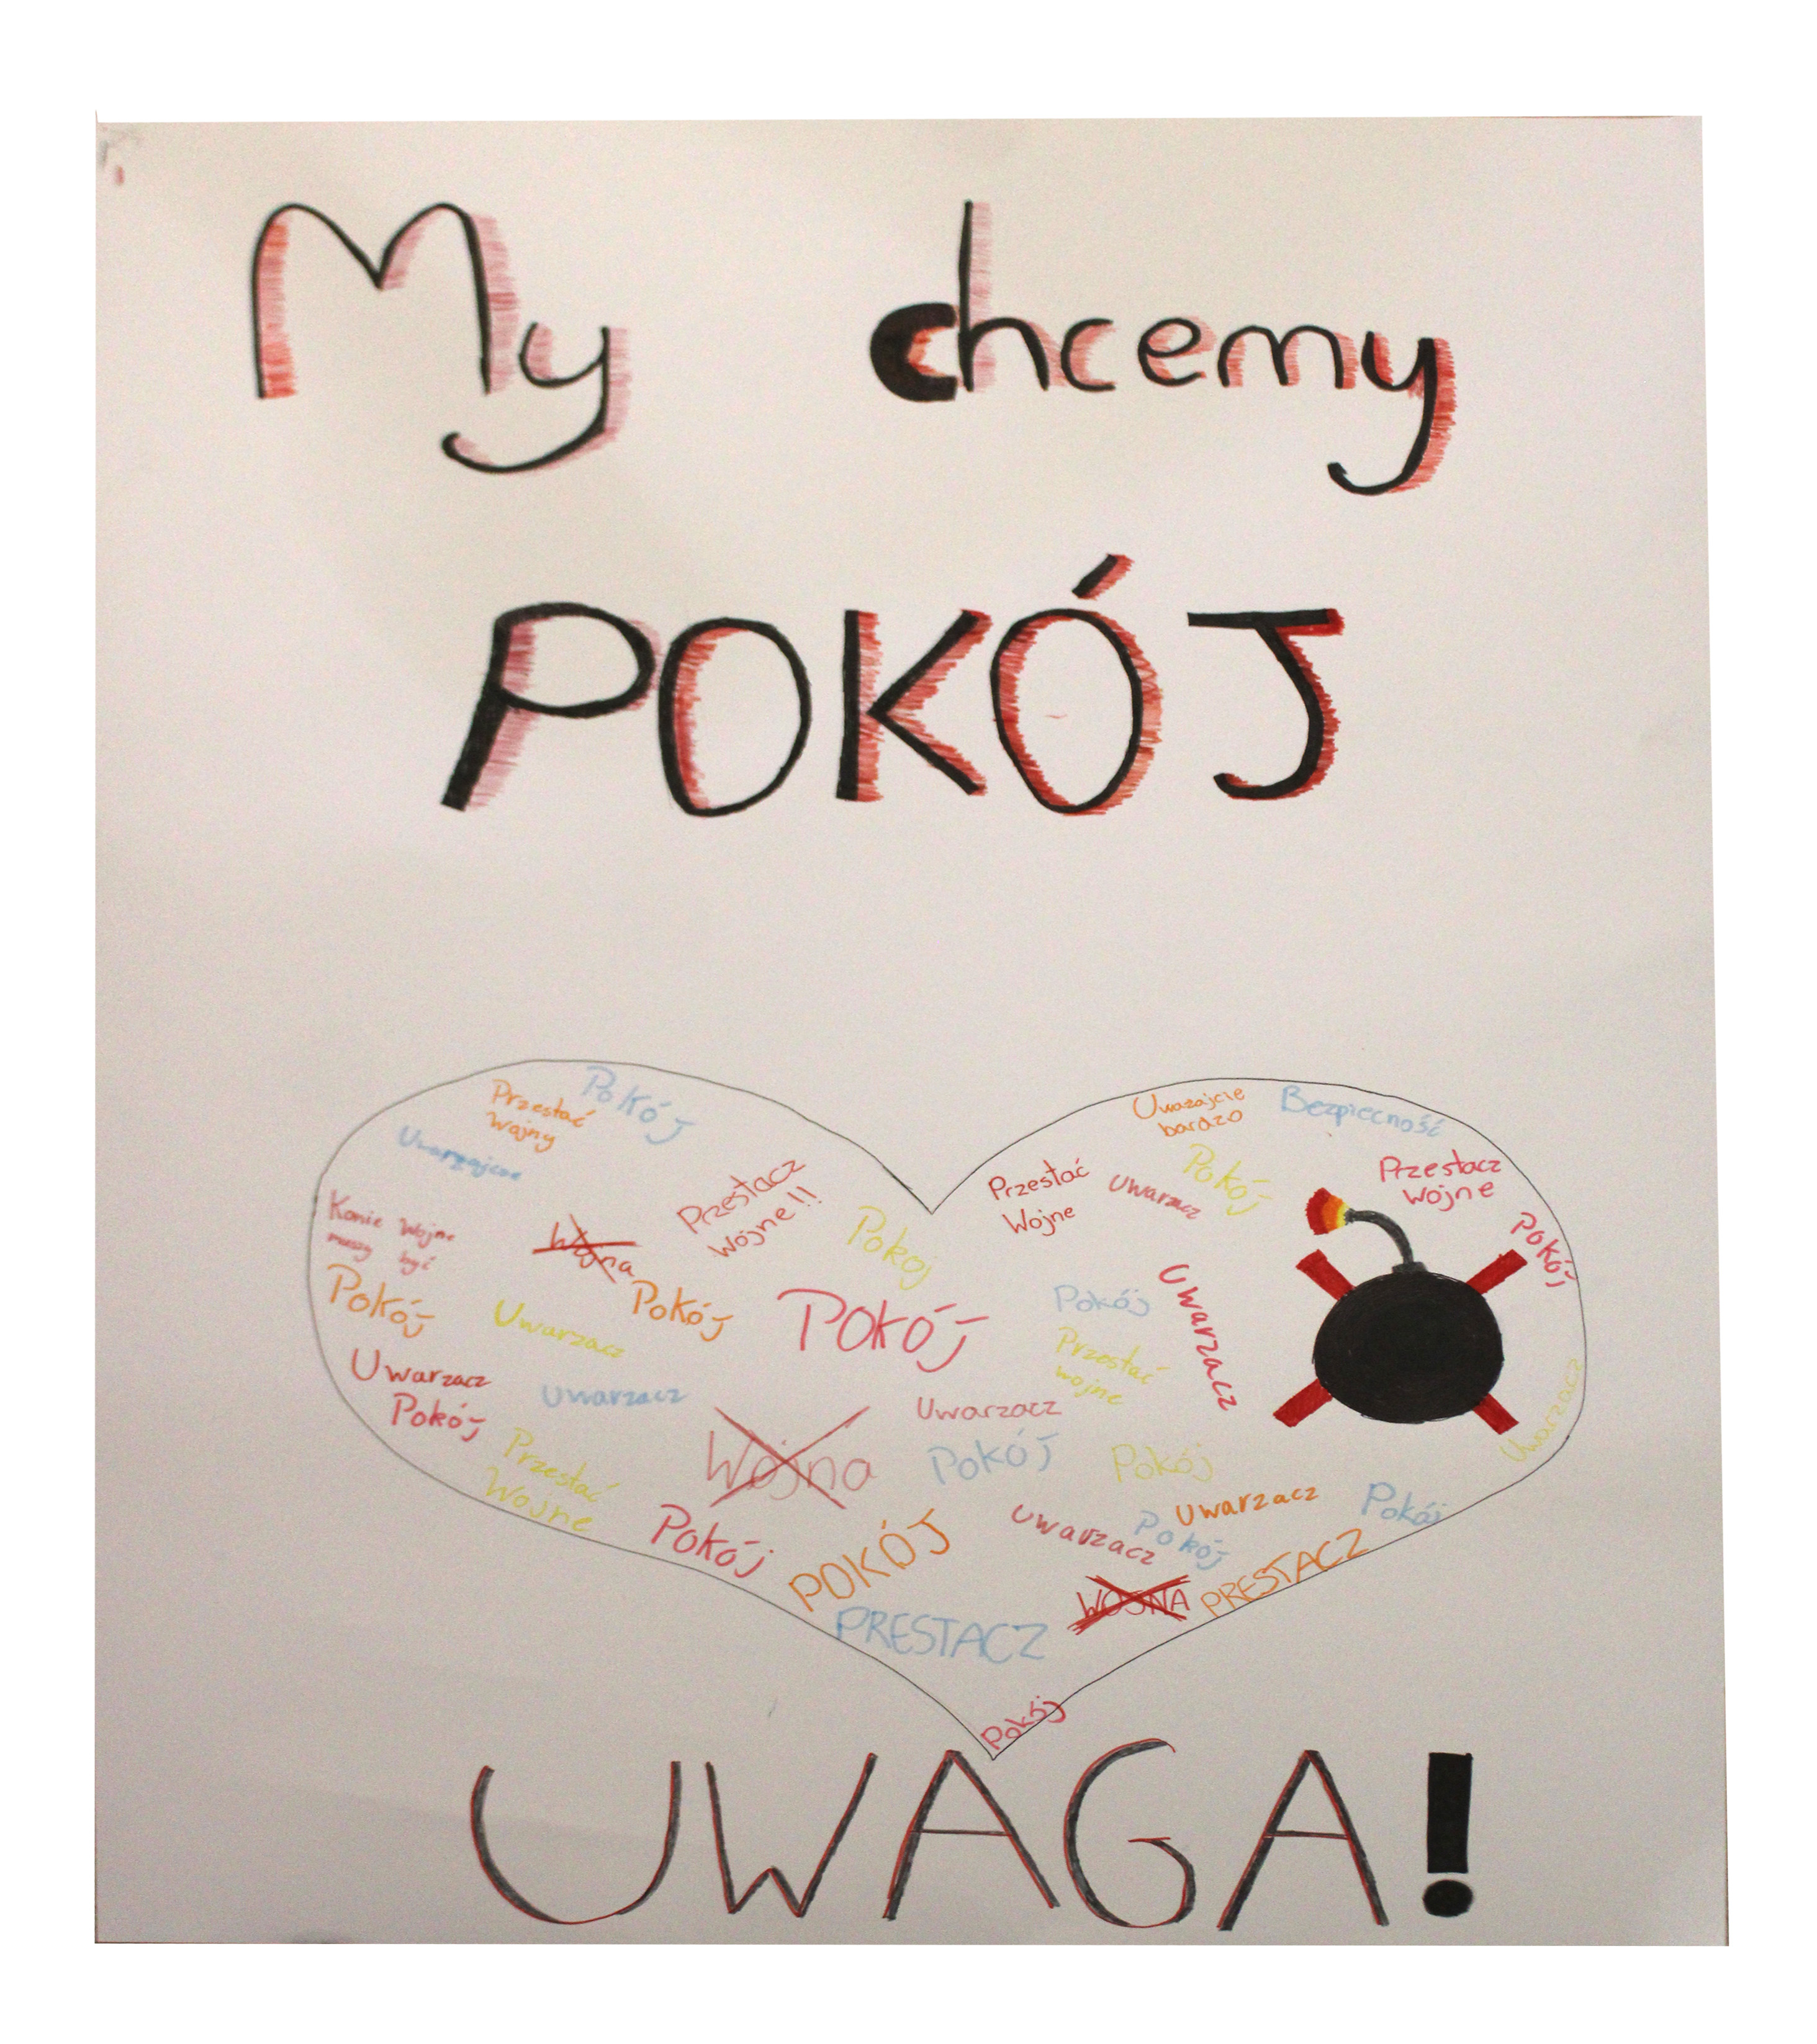 My chcemy
POKÓJ
Pokój
Przestać
Wojny
Uważajcie
bardzo
Bezpiecność
Przestacz
Wójne!!
Przestać
Wojne
Uwarzacz
Pokój
Przestacz
Wojne
Pokój
Konie Wojne
muszy być
Wojna
Pokój
Pokój
Pokój
Uwarzacz
Pokój
Pokój
Uwarzacz
Przestać
wojne
Uwarzacz
Uwarzacz
Pokój
Uwarzacz
Uwarzacz
Uwarzacz
Przestać
Wojne
Wojna
Pokój
Pokój
Pokój
POKÓJ
Uwarzacz
Uwarzacz
Pokój
Pokój
PRESTACZ
WOJNA
PRESTACZ
Pokój
UWAGA!